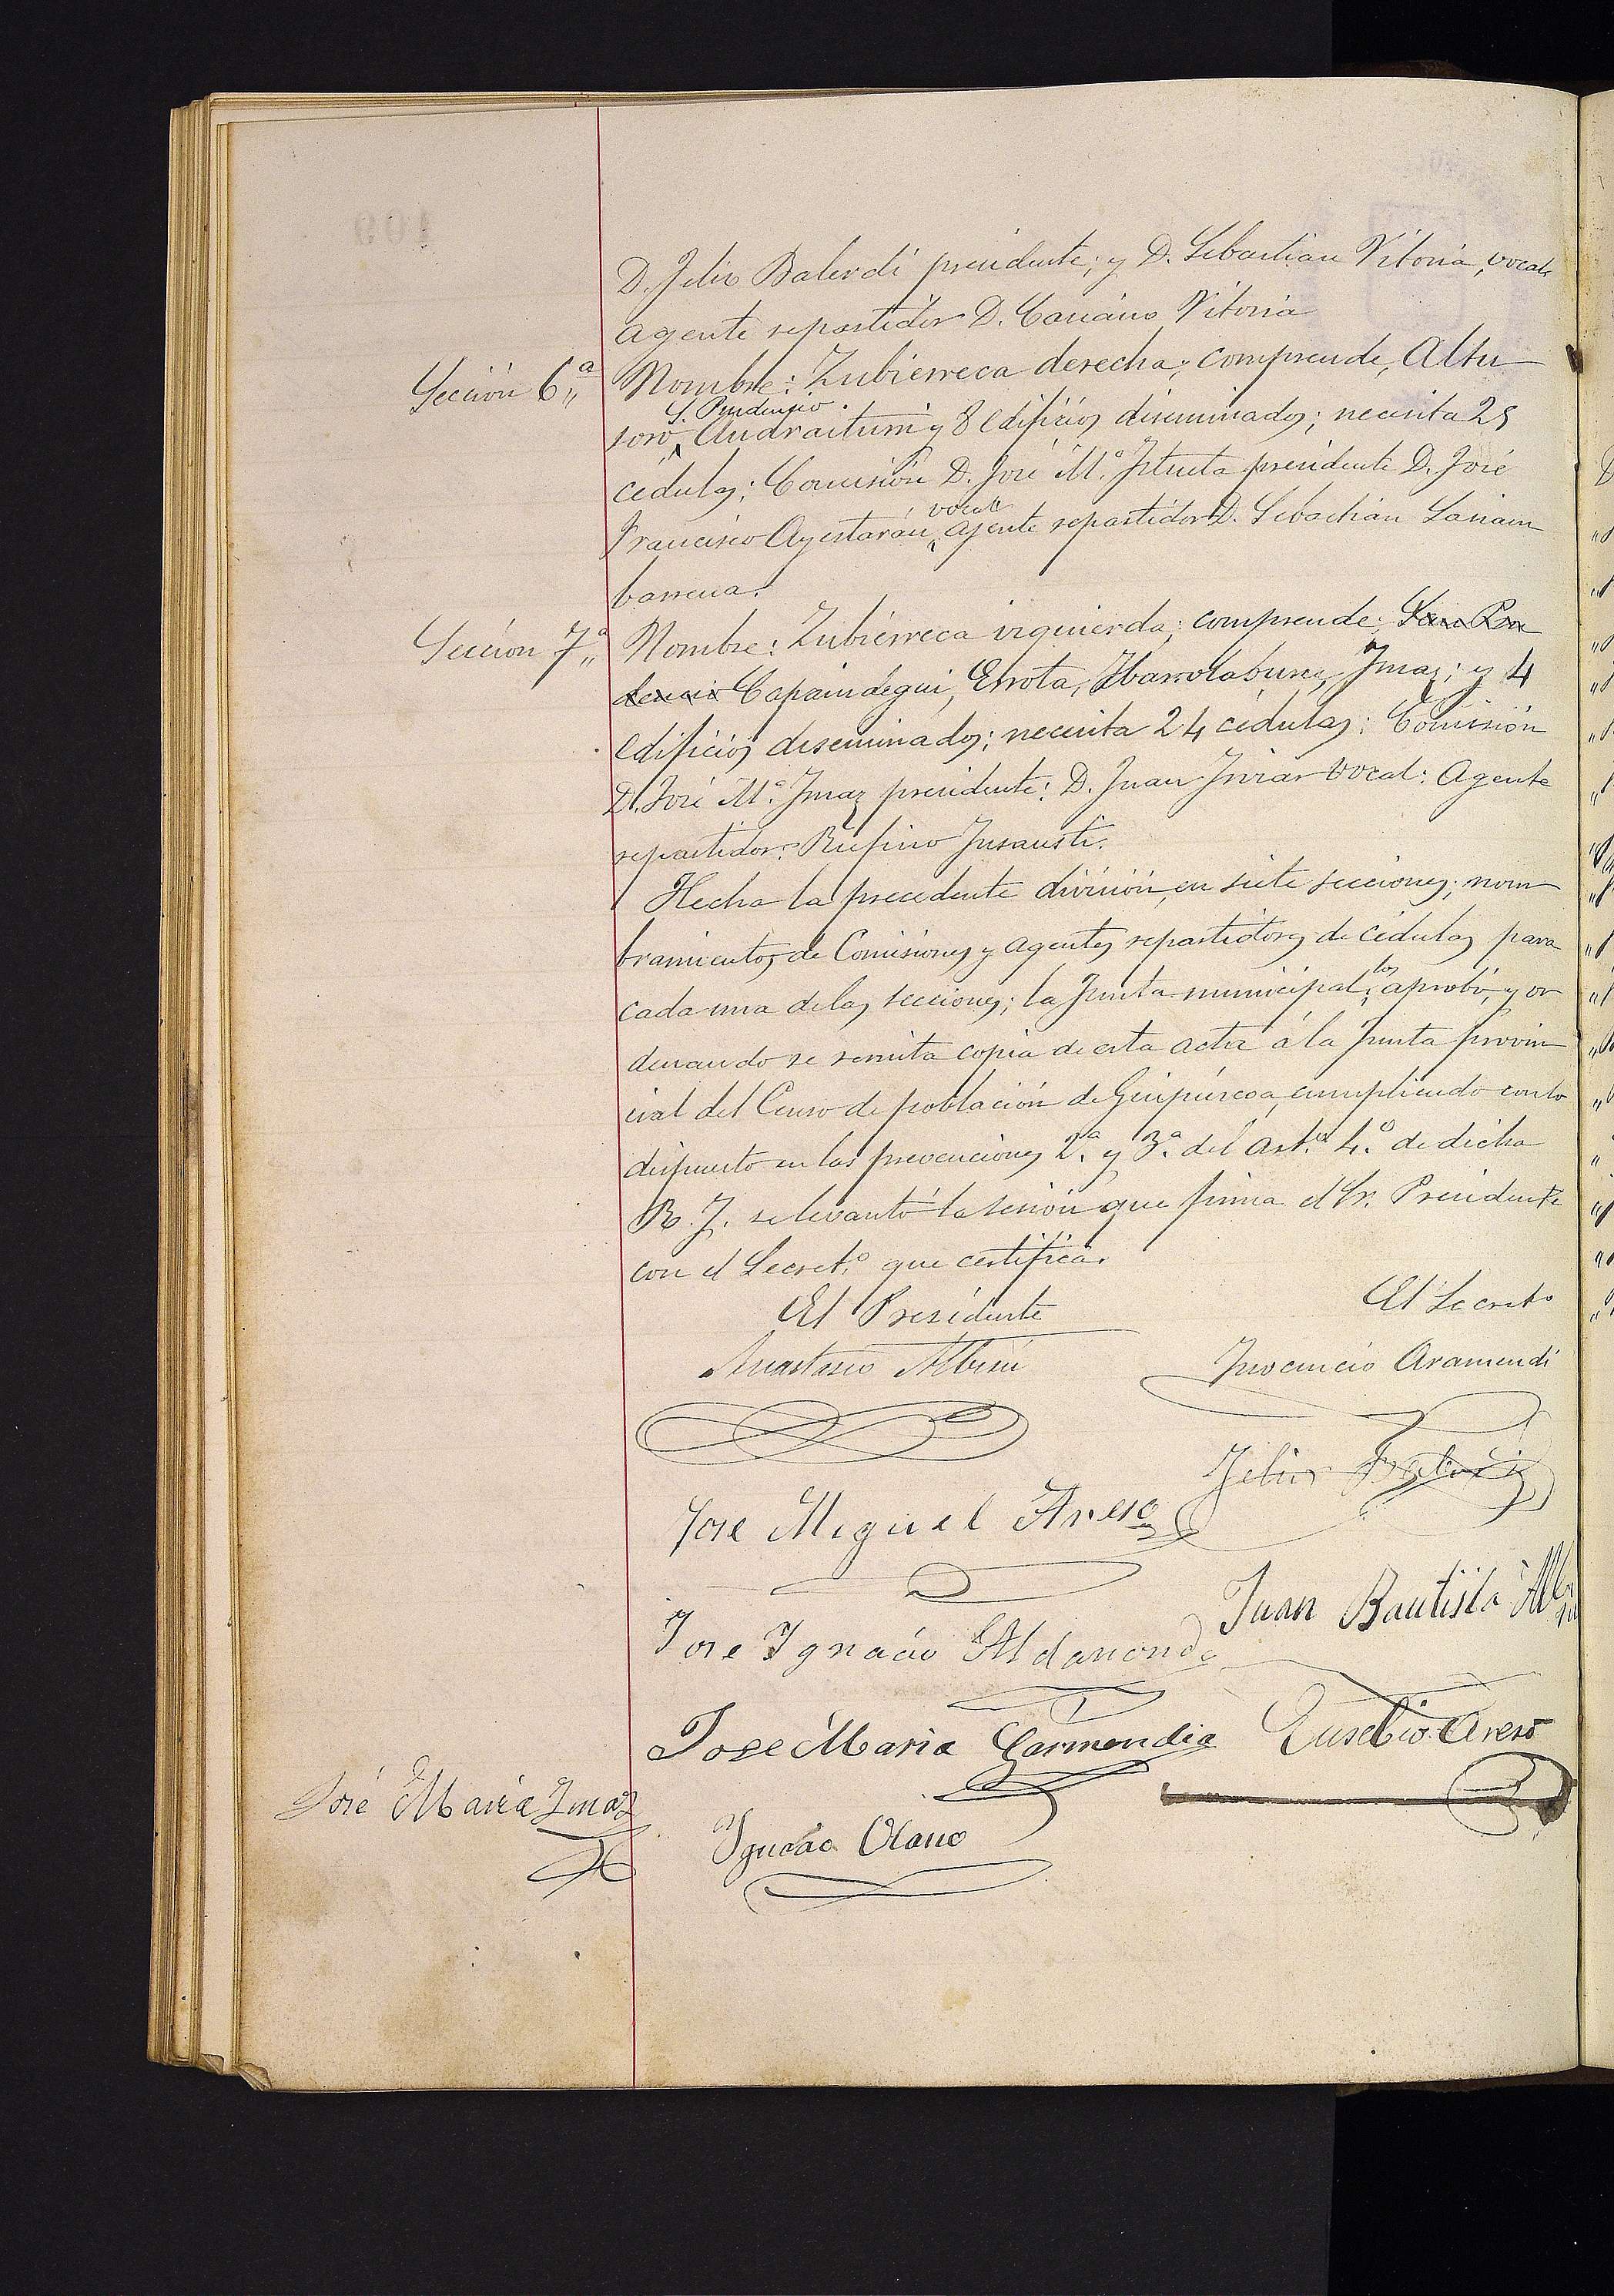 D. Felix Balerdi presidente; y D. Sebastian Vitoria, vocal,
agente repartidor D. Casiano Vitoria
Sección 6ª Nombre: Zubierreca derecha; comprende, Altu
S. Prudencio.
soro, Andraiturri y 8 edificios diseminados; necesita 25
cédulas; Comisión D. José Mª. Iztueta presidente D. José
vocal
Francisco Ayestarán, agente repartidor D. Sebastián Sariam
barrena.
Sección 7ª Nombre: Zubierreca izquierda; comprende: San Pru
dencio Capaindegui, Errota, Ibarrolaburu, Imaz; y 4
edificios diseminados; necesita 24 cédulas: Comisión
D. José Mª. Imaz presidente: D. Juan Iriar vocal: Agente
repartidor: Rufino Insausti.
Hecha la precedente división, en siete secciones; nom
bramientos de Comisiones y agentes repartidores de cédulas para
los
cada una de las secciones; la Junta municipal, aprobó, y or
denando se remita copia de esta acta á la Junta provin
cial del Censo de población de Guipúzcoa, cumpliendo con lo
dispuesto en las prevenciones 2ª. y 3ª. del art. 4.º de dicha
R. I. se levantó la sesión que firma el Sr. Presidente
con el Secretº que certifica.
El Presidente El Secretº
Anastasio Albisu Inocencio Aramendi
Felix Balerdi
Jose Miguel Areso
Juan Bautista Albisu
Jose Ignacio Aldanondo
Jose Maria Garmendia Eusebio Areso
José Maria Imaz
Ignacio Olano